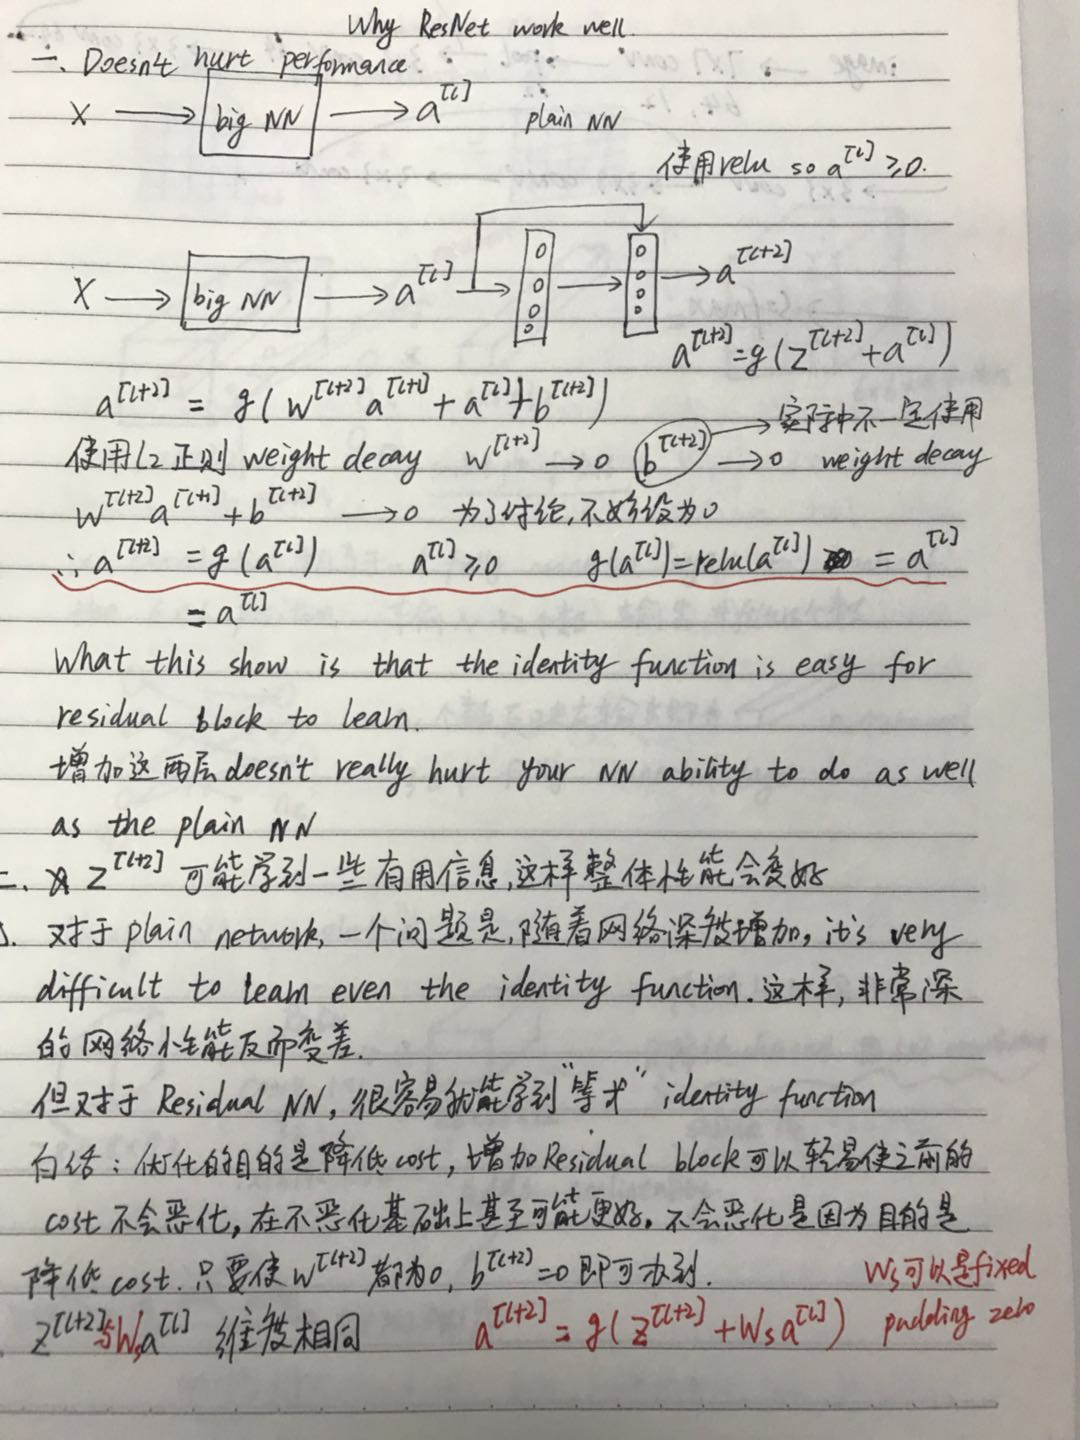 Why ResNet work well.
一、Doesn't hurt performance.
X → big NN → a^[l] plain NN
使用relu so a^[l] ≥0.
X → big NN → a^[l] → → a^[l+2]
a^[l+2] = g(z^[l+2] + a^[l])
a^[l+2] = g(w^[l+2] a^[l+1] + a^[l] + b^[l+2])
使用L2正则 weight decay w^[l+2] → 0 b^[l+2] → 0 → 实际中不一定使用
weight decay
w^[l+2] a^[l+1] + b^[l+2] → 0 为了讨论,不妨设为0
∴ a^[l+2] = g(a^[l]) a^[l] ≥0 g(a^[l]) = relu(a^[l]) = a^[l]
= a^[l]
What this show is that the identity function is easy for
residual block to learn.
增加这两层doesn't really hurt your NN ability to do as well
as the plain NN
二、z^[l+2] 可能学到一些有用信息,这样整体性能会变好
对于plain network,一个问题是,随着网络深度增加,it's very
difficult to learn even the identity function.这样,非常深
的网络性能反而变差.
但对于Residual NN,很容易就能学到"等式" identity function
白话:优化的目的是降低cost,增加Residual block可以轻易使之前的
cost不会恶化,在不恶化基础上甚至可能更好。不会恶化是因为目的是
降低cost.只要使w^[l+2]都为0, b^[l+2]=0即可办到.
Ws可以是fixed
z^[l+2]与Wsa^[l] 维度相同 a^[l+2] = g(z^[l+2] + Wsa^[l]) padding zero